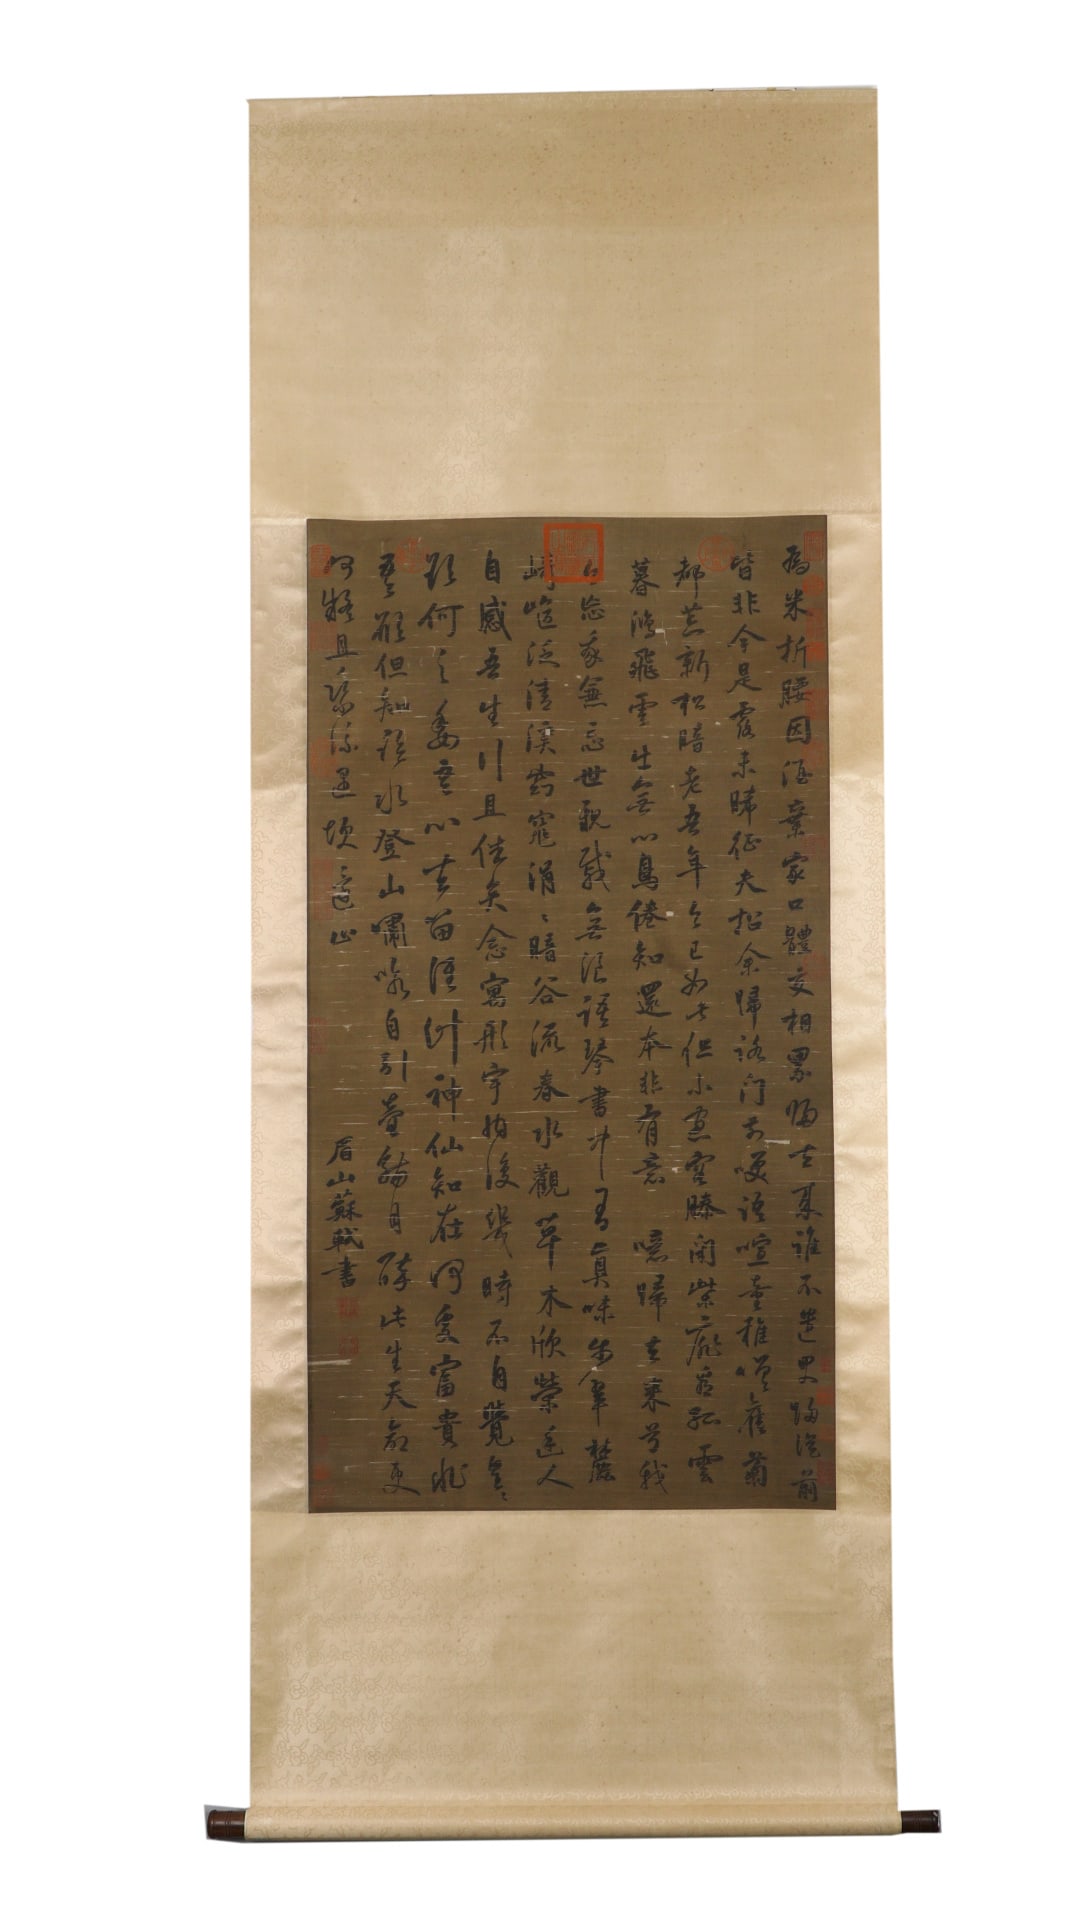 為米折腰因酒棄家口體交相累歸去來誰不遣君歸從前
皆非今是露未晞征夫指余歸路門前笑語喧童稚嗟舊菊
都荒新松暗老吾年今已如此但小窗容膝閉柴扉看孤雲
暮鴻飛雲出無心鳥倦知還本非有意噫歸去來兮我
今忘我兼忘世親戚無浪語琴書中有真味步翠麓
崎嶇泛清溪窈窕涓涓暗谷流春水觀草木欣榮幽人
自感吾生行且休矣念寓形宇內復幾時不自覺皇皇
欲何之委吾心去留誰計神仙知在何處富貴非
吾願但知臨水登山嘯詠自引壺觴自醉此生天命更
何疑且乘流遇坎還止
眉山蘇軾書